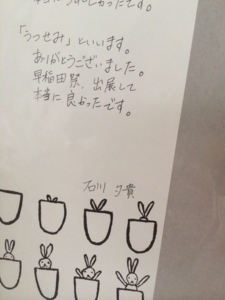 しかったです。
「うつせみ」といいます。
ありがとうございました。
早稲田祭、出展して
本当に良かったです。
石川 夕貴